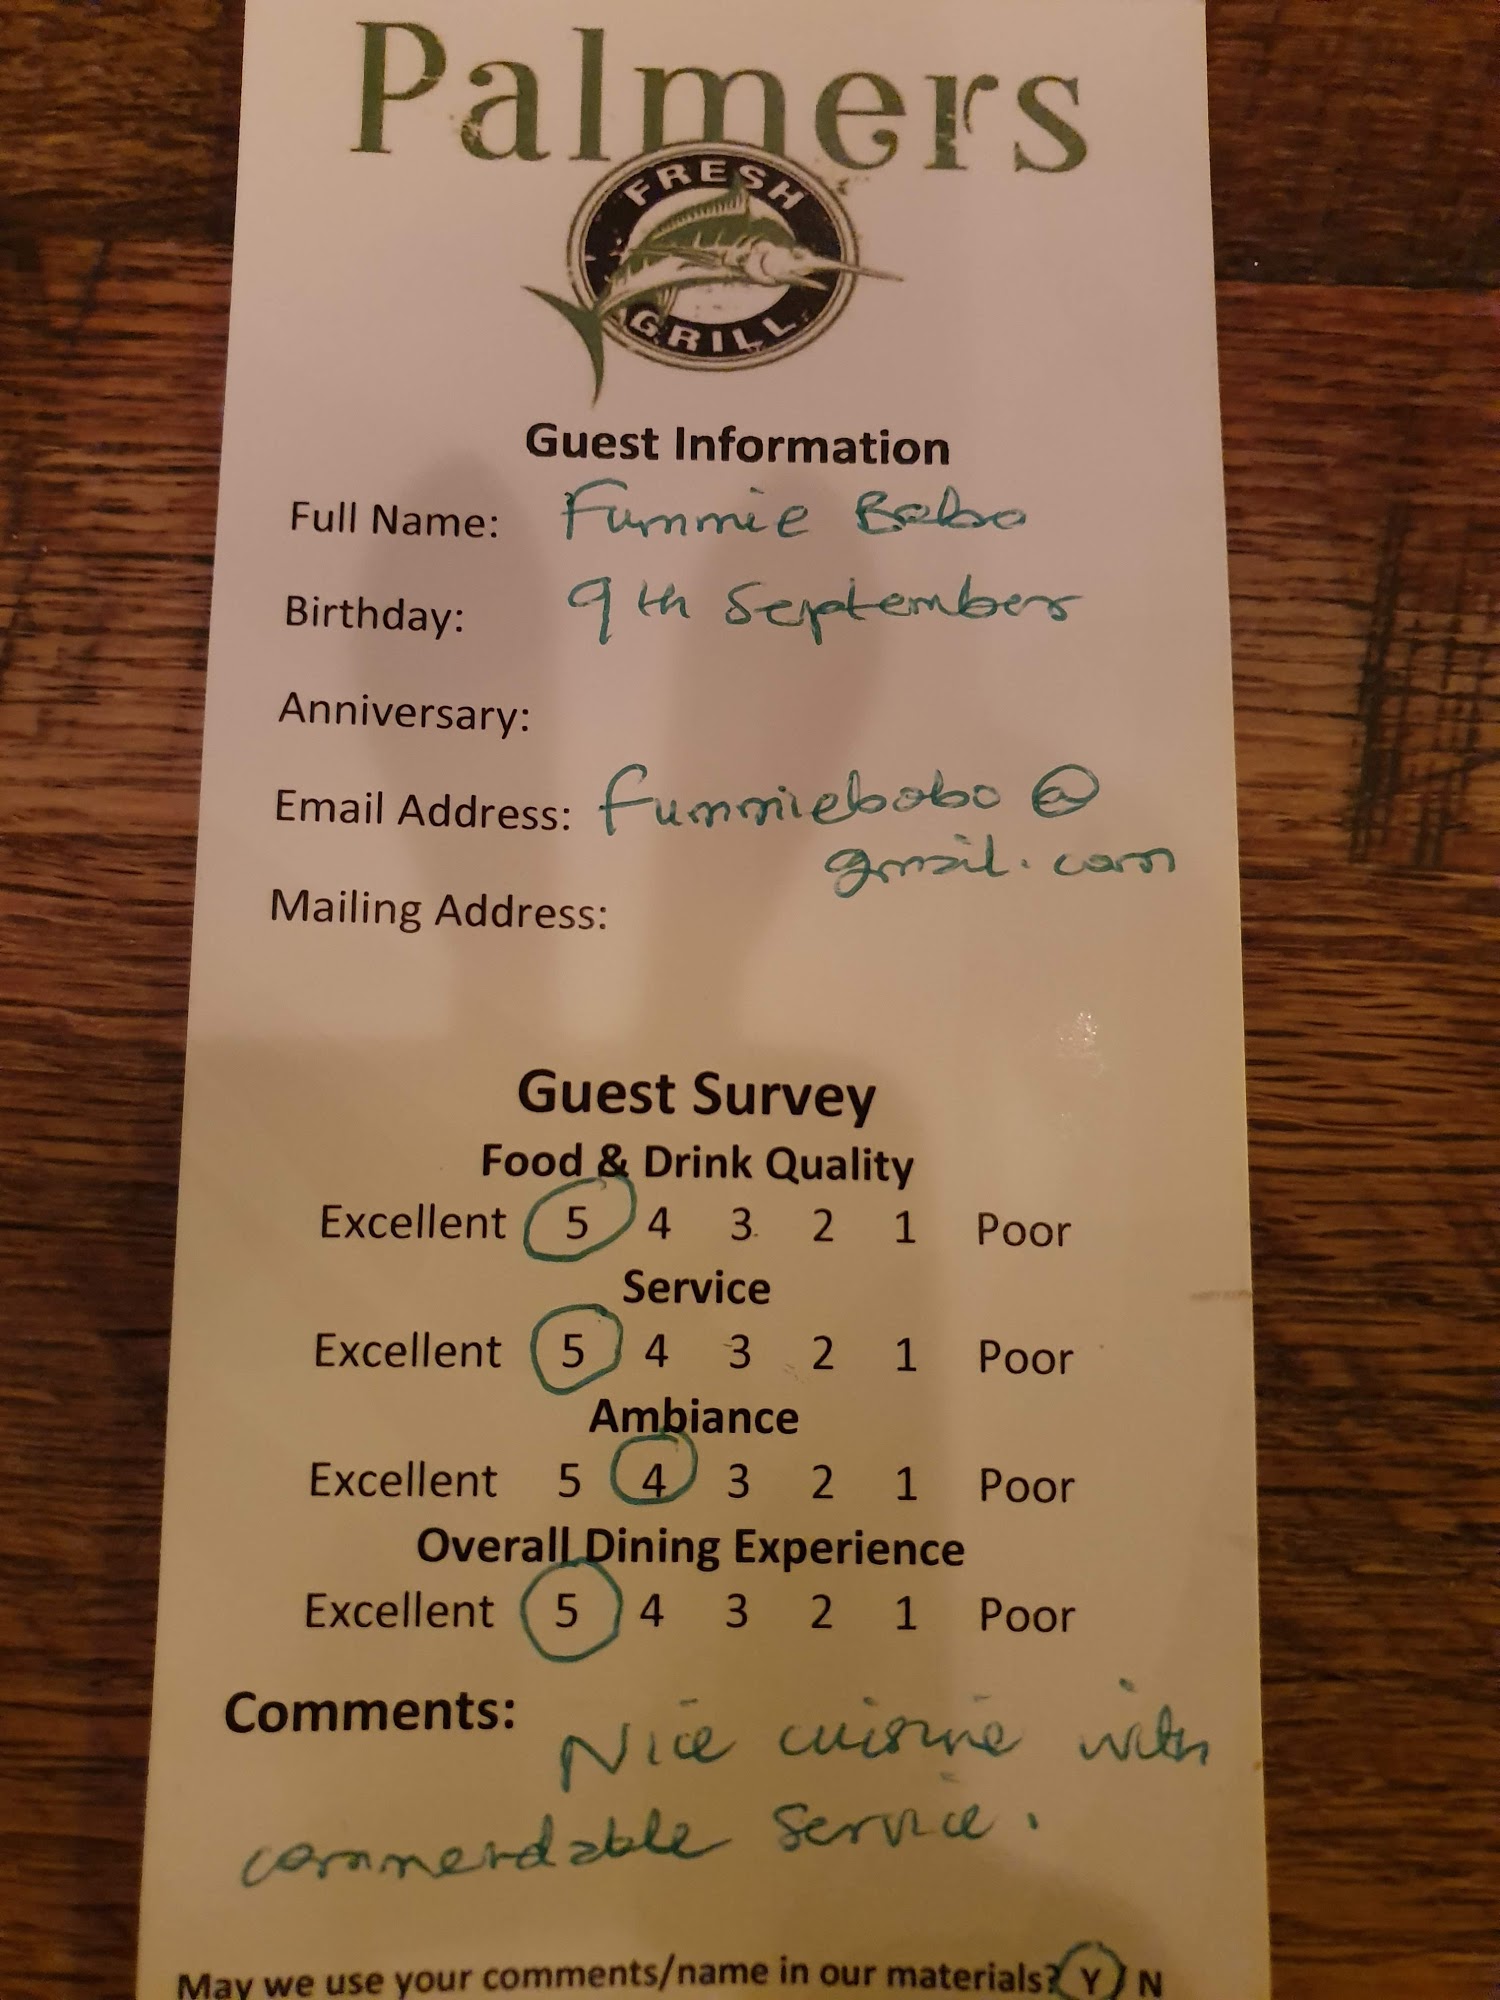 Palmers
FRESH
GRILL
Guest Information
Full Name: Fummie Bobo
Birthday: 9th September
Anniversary:
Email Address: fummiebobo@
gmail.com
Mailing Address:
Guest Survey
Food & Drink Quality
Excellent 5 4 3 2 1 Poor
Service
Excellent 5 4 3 2 1 Poor
Ambiance
Excellent 5 4 3 2 1 Poor
Overall Dining Experience
Excellent 5 4 3 2 1 Poor
Comments: Nice cuisine with
commendable service.
May we use your comments/name in our materials? Y / N